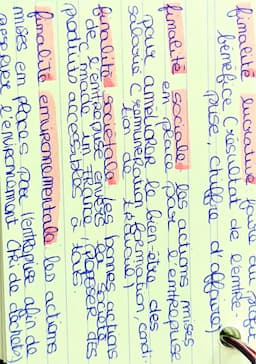 finalité lucrative faire du profit
bénéfice (résultat de l'entre-
prise, chiffre d'affaires)
finalité sociale les actions mises
en place par l'entreprise
pour améliorer le bien-être des
salariés (rémunération, formation, condi-
de travail)
finalité sociétale les bonnes actions
de l'entreprise envers la société
proposer des
produits accessibles à tous
finalité environnementale les actions
mises en places par l'entreprise afin de
l'environnement (tri de déchets)